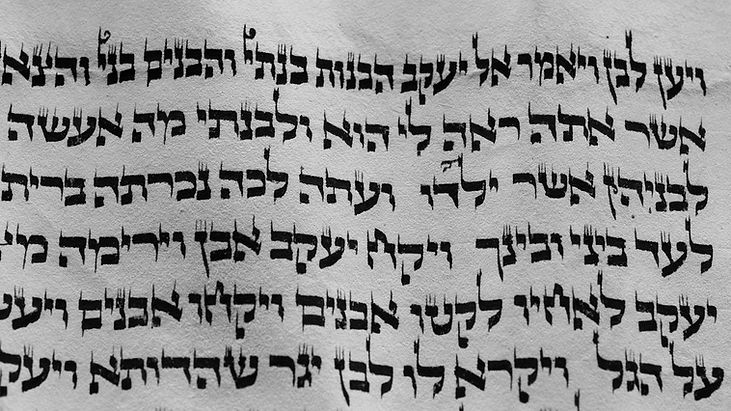 ויען לבן ויאמר אל יעקב הבנות בנתי והבנים בני והצא
אשר אתה ראה לי הוא ולבנתי מה אעשה
לבניהן אשר ילדו ועתה לכה נכרתה ברית
לעד ביני ובינך ויקח יעקב אבן וירימה
יעקב לאחיו לקטו אבנים ויקחו אבנים ויעש
על הגל ויקרא לו לבן יגר שהדותא ויעק